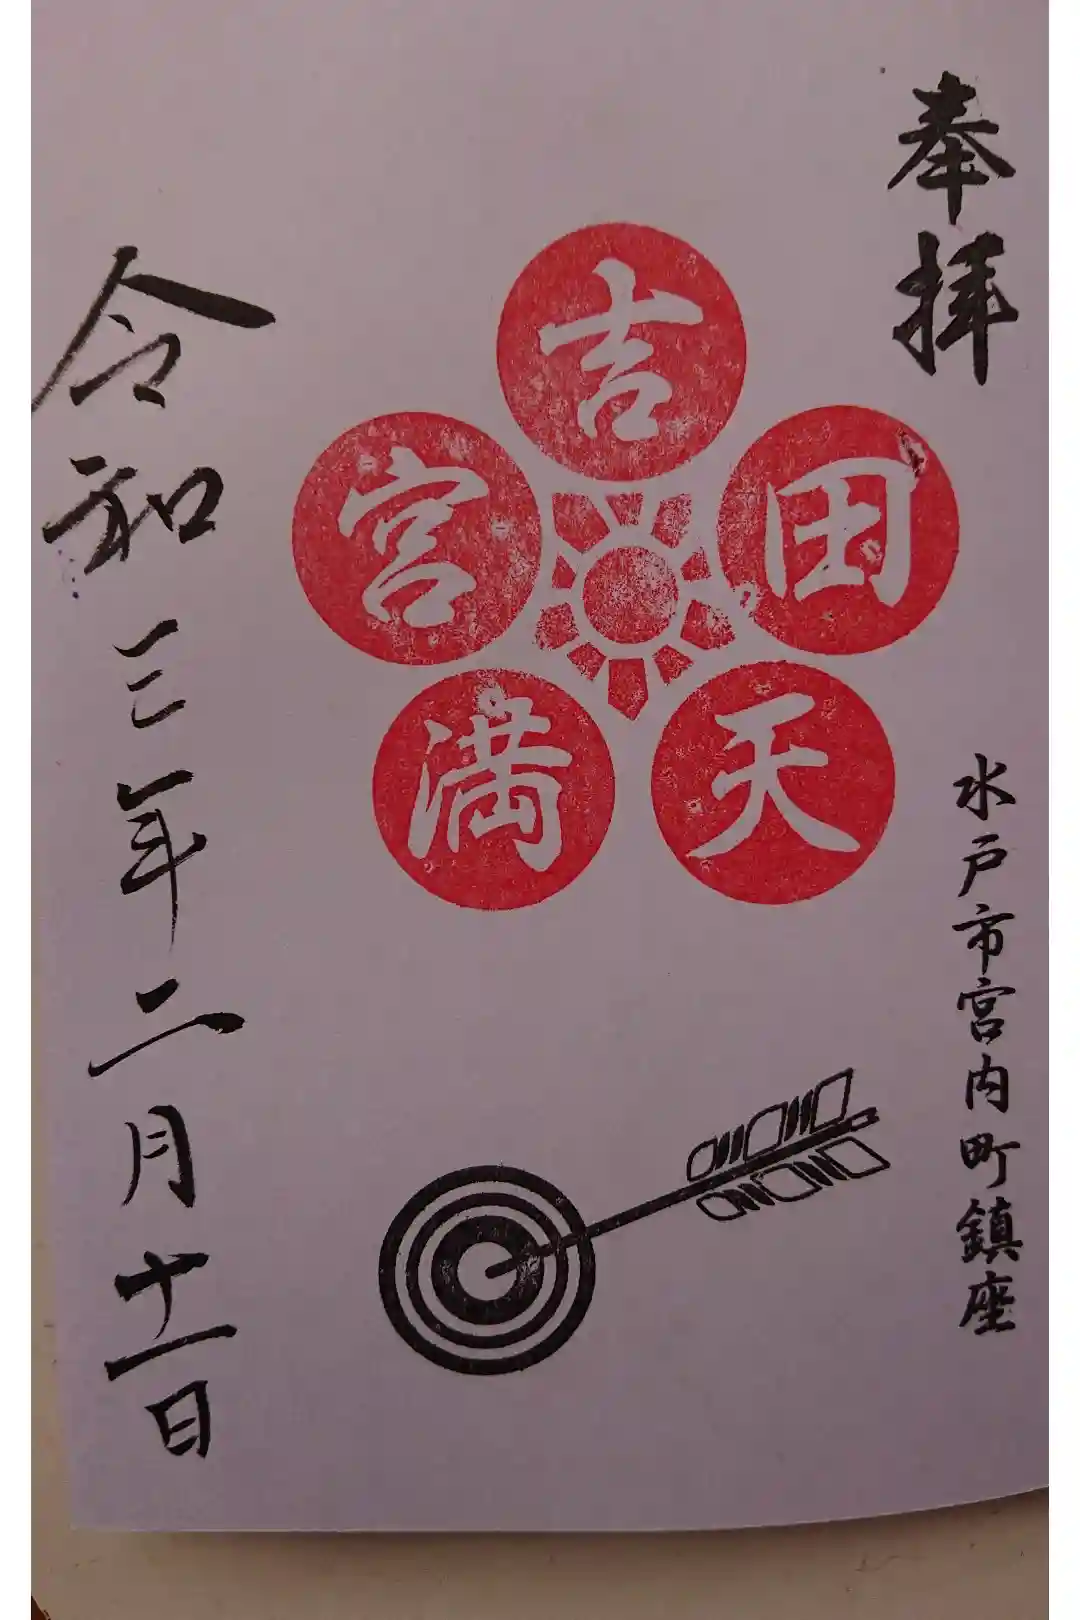 奉拝
吉田天満宮
水戸市宮内町鎮座
令和三年二月十一日